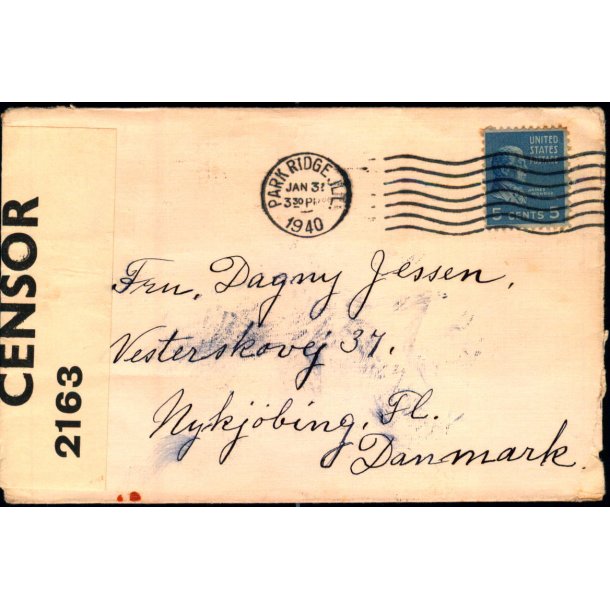 CENSOR
2163
PARK RIDGE, ILL.
JAN 31
3 30 PM
1940
UNITED
STATES
POSTAGE
JAMES
MONROE
5 CENTS 5
Fru, Dagny Jessen,
Vesterskovej 37.
Nykjöbing, Fl.
Danmark.